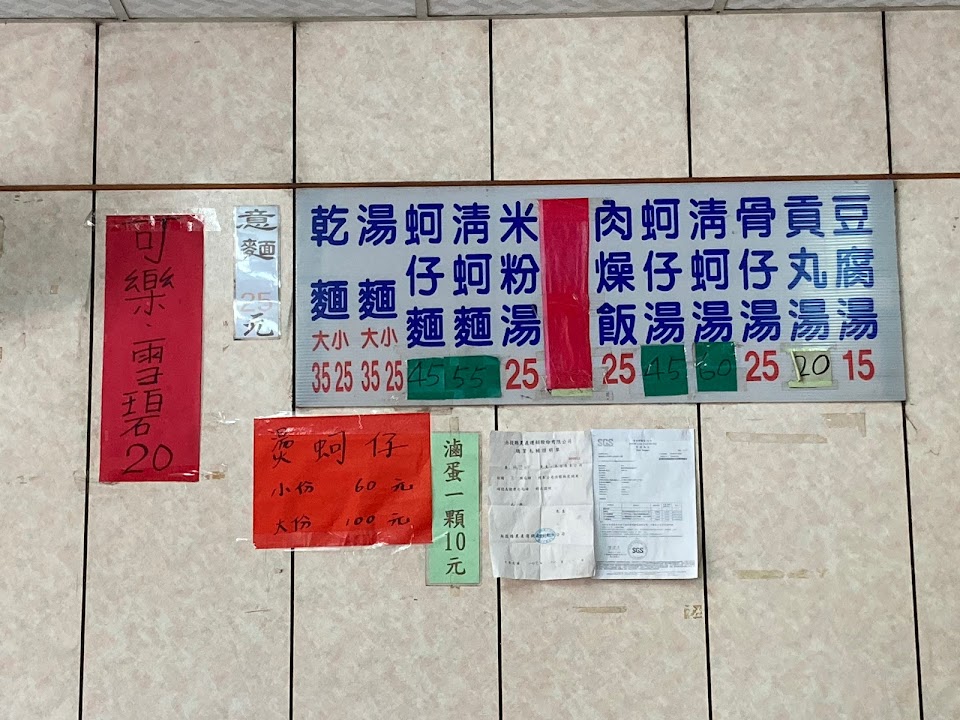 可樂·雪碧20
意麵25元
乾麵 大35 小25
湯麵 大35 小25
蚵仔麵45
清蚵麵55
米粉湯25
肉燥飯25
蚵仔湯45
清蚵湯60
骨仔湯25
貢丸湯20
豆腐湯15
燙蚵仔
小份 60元
大份 100元
滷蛋一顆10元
SGS
SGS